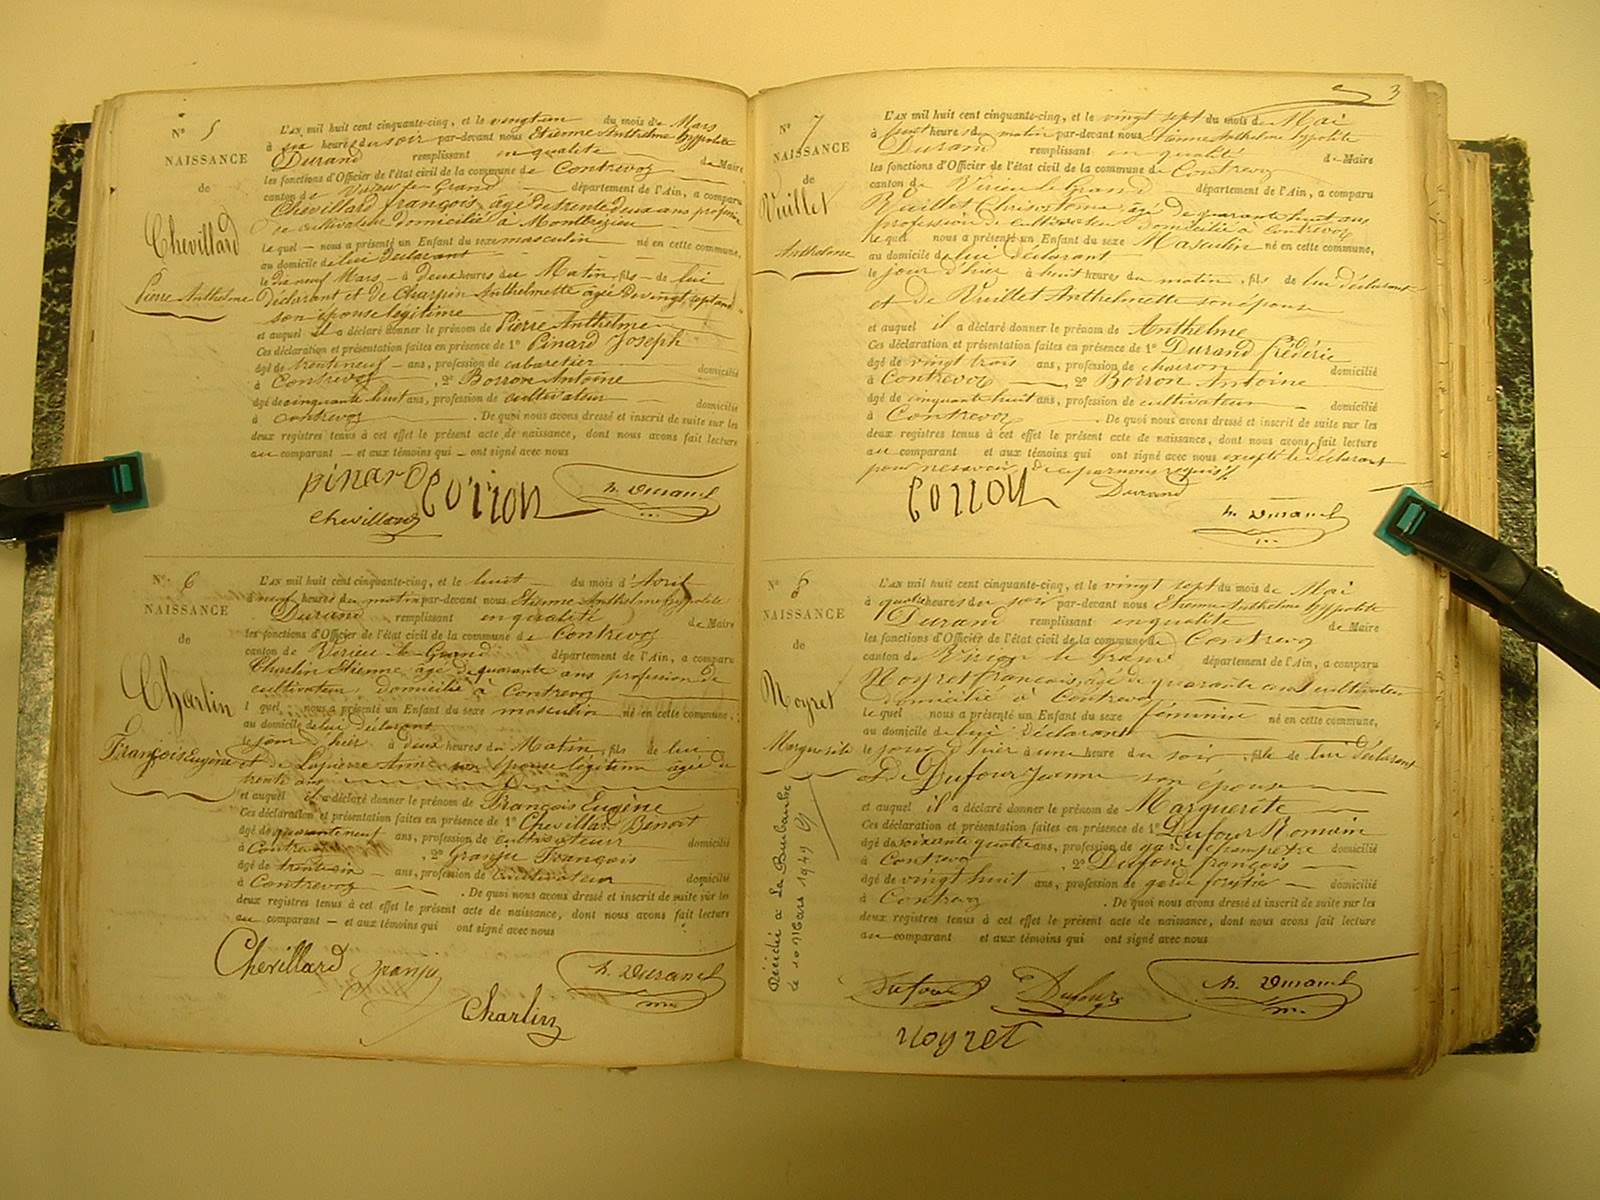 3
N° 5
NAISSANCE
de
Chevillard
Pierre Anthelme
L'AN mil huit cent cinquante-cinq, et le vingt un du mois de Mars
à six heures du soir par-devant nous Etienne Anthelme hyppolite
Durand remplissant en qualité de Maire
les fonctions d'Officier de l'état civil de la commune de Contrevoz
canton de Virieu le Grand département de l'Ain, a comparu
Chevillard françois, âgé de trente deux ans profession
de cultivateur domicilié à Montbrezieu
lequel nous a présenté un Enfant du sexe masculin né en cette commune,
au domicile de lui déclarant
le dix neuf Mars à deux heures du Matin, fils de lui
déclarant et de Charpin Anthelmette âgée de vingt sept ans
son épouse légitime
et auquel il a déclaré donner le prénom de Pierre Anthelme
Ces déclaration et présentation faites en présence de 1° Pinard Joseph
âgé de trente neuf ans, profession de cabaretier domicilié
à Contrevoz, 2° Borron Antoine
âgé de cinquante huit ans, profession de cultivateur domicilié
à Contrevoz. De quoi nous avons dressé et inscrit de suite sur les
deux registres tenus à cet effet le présent acte de naissance, dont nous avons fait lecture
au comparant et aux témoins qui ont signé avec nous
pinard borron h. Durand
chevillard
N° 6
NAISSANCE
de
Charlin
François Eugène
L'AN mil huit cent cinquante-cinq, et le huit du mois d'Avril
à neuf heures du matin par-devant nous Etienne Anthelme hyppolite
Durand remplissant en qualité de Maire
les fonctions d'Officier de l'état civil de la commune de Contrevoz
canton de Virieu le Grand département de l'Ain, a comparu
Charlin Etienne âgé de quarante ans profession de
cultivateur, domicilié à Contrevoz
l quel nous a présenté un Enfant du sexe masculin né en cette commune,
au domicile de lui déclarant
le jour d'hier à deux heures du Matin, fils de lui
et de Lapierre Anne son épouse légitime âgée de
trente ans
et auquel il a déclaré donner le prénom de François Eugène
Ces déclaration et présentation faites en présence de 1° Chevillard Benoit
âgé de quarante neuf ans, profession de cultivateur domicilié
à Contrevoz, 2° Granju François
âgé de trente un ans, profession de cultivateur domicilié
à Contrevoz. De quoi nous avons dressé et inscrit de suite sur les
deux registres tenus à cet effet le présent acte de naissance, dont nous avons fait lecture
au comparant et aux témoins qui ont signé avec nous
Chevillard granju h. Durand
Charlin
N° 7
NAISSANCE
de
Vuillet
Anthelme
L'AN mil huit cent cinquante-cinq, et le vingt sept du mois de Mai
à huit heures du matin par-devant nous Etienne Anthelme hyppolite
Durand remplissant en qualité de Maire
les fonctions d'Officier de l'état civil de la commune de Contrevoz
canton de Virieu le Grand département de l'Ain, a comparu
Vuillet Chrisostome âgé de quarante huit ans
profession de cultivateur domicilié à Contrevoz
lequel nous a présenté un Enfant du sexe Masculin né en cette commune,
au domicile de lui déclarant
le jour d'hier à huit heures du matin, fils de lui déclarant
et de Vuillet Anthelmette son épouse
et auquel il a déclaré donner le prénom de Anthelme
Ces déclaration et présentation faites en présence de 1° Durand frédéric
âgé de vingt trois ans, profession de charron domicilié
à Contrevoz, 2° Borron Antoine
âgé de cinquante huit ans, profession de cultivateur domicilié
à Contrevoz. De quoi nous avons dressé et inscrit de suite sur les
deux registres tenus à cet effet le présent acte de naissance, dont nous avons fait lecture
au comparant et aux témoins qui ont signé avec nous excepté le déclarant
pour ne savoir de ce par nous requis
borron Durand
h. Durand
N° 8
NAISSANCE
de
Noyret
Marguerite
Décédée à La Burbanche
le 10 Mars 1949
L'AN mil huit cent cinquante-cinq, et le vingt sept du mois de Mai
à quatre heures du soir par-devant nous Etienne Anthelme hyppolite
Durand remplissant en qualité de Maire
les fonctions d'Officier de l'état civil de la commune de Contrevoz
canton de Virieu le Grand département de l'Ain, a comparu
Noyret francois, âgé de quarante ans cultivateur
domicilié à Contrevoz
le quel nous a présenté un Enfant du sexe féminine né en cette commune,
au domicile de lui déclarant
le jour d'hier à une heure du soir, fille de lui déclarant
et de Dufour Jeanne son épouse
et auquel il a déclaré donner le prénom de Marguerite
Ces déclaration et présentation faites en présence de 1° Dufour Romain
âgé de soixante quatre ans, profession de garde champêtre domicilié
à Contrevoz, 2° Dufour françois
âgé de vingt huit ans, profession de garde forestier domicilié
à Contrevoz. De quoi nous avons dressé et inscrit de suite sur les
deux registres tenus à cet effet le présent acte de naissance, dont nous avons fait lecture
au comparant et aux témoins qui ont signé avec nous
Dufour Dufour h. Durand
noyret